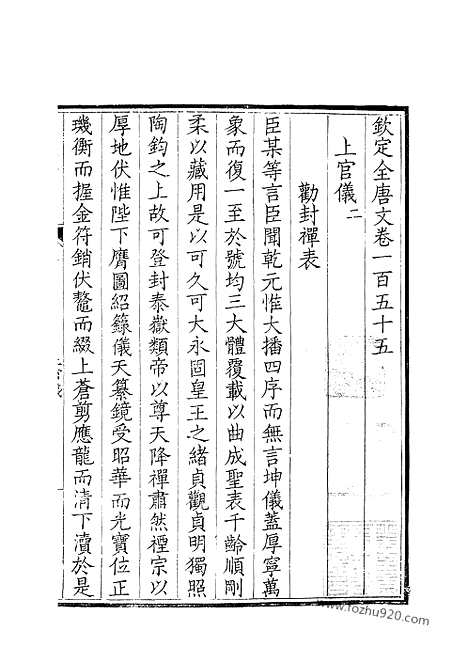 欽定全唐文卷一百五十五
上官儀二
勸封禪表
臣某等言臣聞乾元惟大播四序而無言坤儀蓋厚寧萬
象而復一至於號均三大體覆載以曲成聖表千齡順剛
柔以藏用是以可久可大永固皇王之緒貞觀貞明獨照
陶鈞之上故可登封泰嶽類帝以尊天降禪肅然禋宗以
厚地伏惟陛下膺圖紹籙儀天纂鏡受昭華而光寶位正
璣衡而握金符銷伏鼇而綴上蒼剪應龍而清下瀆於是
www.fozhu920.com